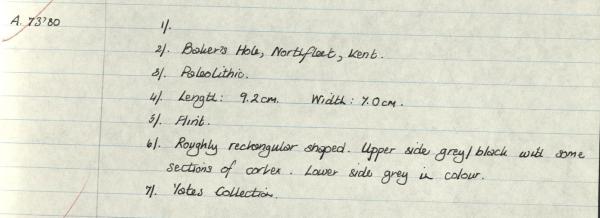 A. 73'80
1/.
2/. Baker's Hole, Northfleet, Kent.
3/. Paleolithic.
4/. Length: 9.2cm. Width: 7.0cm.
5/. Flint.
6/. Roughly rectangular shaped. Upper side grey/black with some
sections of cortex. Lower side grey in colour.
7/. Yates Collection.